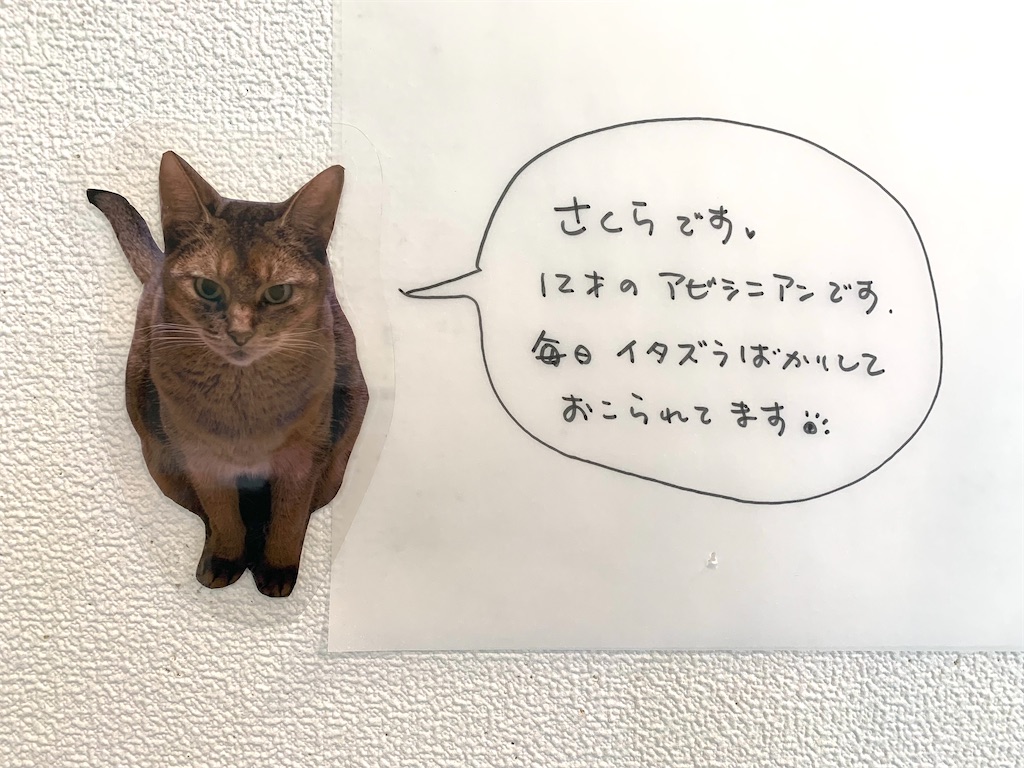 さくらです♥
12才のアビシニアンです.
毎日イタズラばかりして
おこられてます🐾